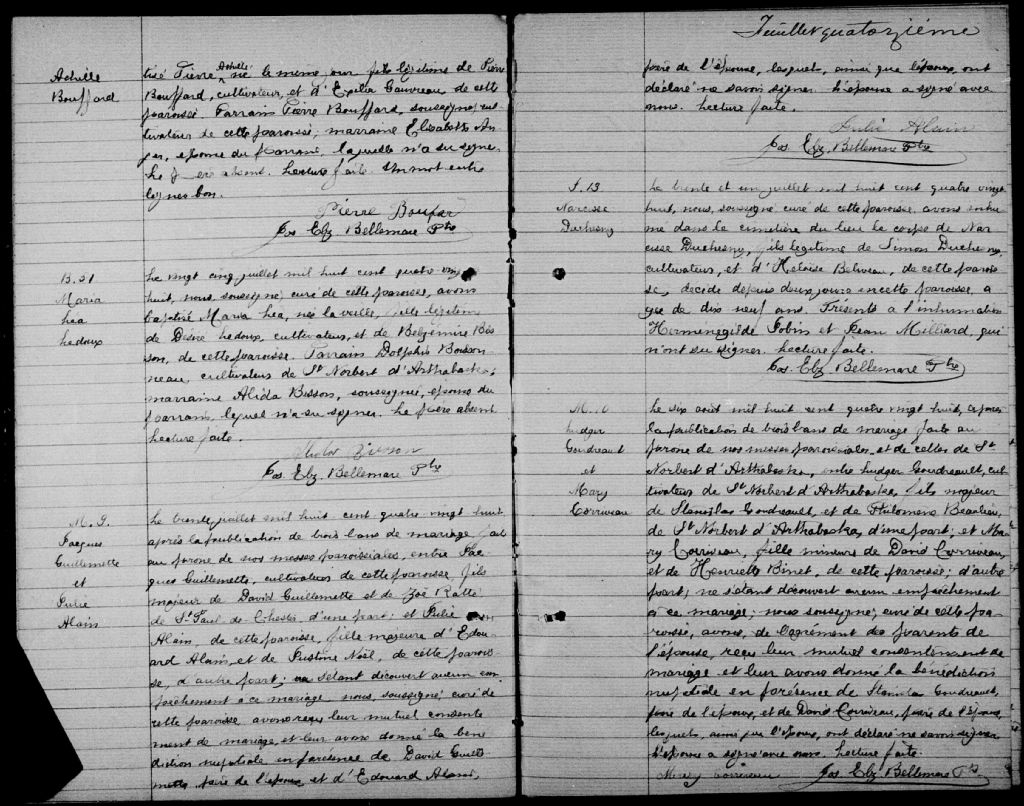 Achille
Bouffard
tisé Pierre Achille né le meme jour fils légitime de Pierre
Bouffard, cultivateur, et d'Exélia Gauvreau de cette
paroisse. Parrain Pierre Bouffard, soussigné, cul
tivateur de cette paroisse, marraine Elisabeth An
ger, epouse du parrain, laquelle n'a su signer.
Le père absent. Lecture faite. Un mot entre
lignes bon.
PierreBoufar
Jos. Elz. Bellemare Ptre
B. 31
Maria
Léa
Ledoux
Le vingt cinq juillet mil huit cent quatre vingt
huit, nous, soussigné, curé de cette paroisse, avons
baptisé Maria Lea, née la veille, fille légitime
de Désiré Ledoux, cultivateur, et de Belzémire Bis
son, de cette paroisse. Parrain Dolphis Boisson
neau, cultivateur de St Norbert d'Arthabaska;
marraine Alida Bisson, soussignée, epouse du
parrain, lequel n'a su signer. Le père absent
Lecture faite.
Jos. Elz. Bellemare Ptre
M. 9.
Jacques
Guillemette
et
Julie
Alain
Le trente juillet mil huit cent quatre vingt huit
après la publication de trois bans de mariage fait
au prone de nos messes paroissiales, entre Jac
ques Guillemette, cultivateur de cette paroisse fils
majeur de David Guillemette et de Zoé Ratté
de St Paul de Chester d'une part; et Julie
Alain, de cette paroisse, fille majeure d'Edou
ard Alain et de Justine Noël, de cette parois
se, d'autre part; ne s'étant découvert aucun em
pêchement a ce mariage nous, soussigné curé de
cette paroisse avons reçu leur mutuel consente
ment de mariage, et leur avons donné la béné
diction nuptiale en présence de David Guille
mette père de l'époux et d'Edouard Alain,
Feuillet quatorzième
père de l'épouse, lesquels, ainsi que l'époux, ont
déclaré ne savoir signer. L'épouse a signé avec
nous. Lecture faite.
Julie Alain
Jos. Elz. Bellemare Ptre
S. 13
Narcisse
Duchesny
Le trente et un juillet mil huit cent quatre vingt
huit, nous, soussigné curé de cette paroisse, avons inhu
mé dans le cimetière du lieu le corps de Nar
cisse Duchesny, fils légitime de Simon Duchesny,
cultivateur, et d'Héloïse Beliveau, de cette parois
se, décédé depuis deux jours en cette paroisse, a
gé de dix neuf ans. Présents a l'inhumation
Hermenégilde Fobin et Jean Milliard, qui
n'ont su signer. Lecture faite.
Jos. Elz. Bellemare Ptre
M. 10
Ludger
Goudreault
et
Mary
Corriveau
Le six août mil huit cent quatre vingt huit, après
la publication de trois bans de mariage faite au
prone de nos messes paroissiales, et de celles de St
Norbert d'Arthabaska, entre Ludger Goudreault, cul
tivateur de St Norbert d'Arthabaska, fils majeur
de Stanislas Goudreault, et de Philomène Beaulieu,
de St Norbert d'Arthabaska, d'une part; et Ma
ry Corriveau, fille mineure de David Corriveau,
et de Henriette Binet, de cette paroisse; d'autre
part; ne s'étant découvert aucun empêchement
a ce mariage; nous soussigné, curé de cette pa
roisse, avons, de l'agrément des parents de
l'épouse, reçu leur mutuel consentement de
mariage et leur avons donné la bénédiction
nuptiale en présence de Stanislas Goudreault,
père de l'époux, et de David Corriveau, père de l'épouse,
lesquels, ainsi que l'époux, ont déclaré ne savoir signer
L'épouse a signé avec nous. Lecture faite.
Mary Corriveau
Jos. Elz. Bellemare Ptre